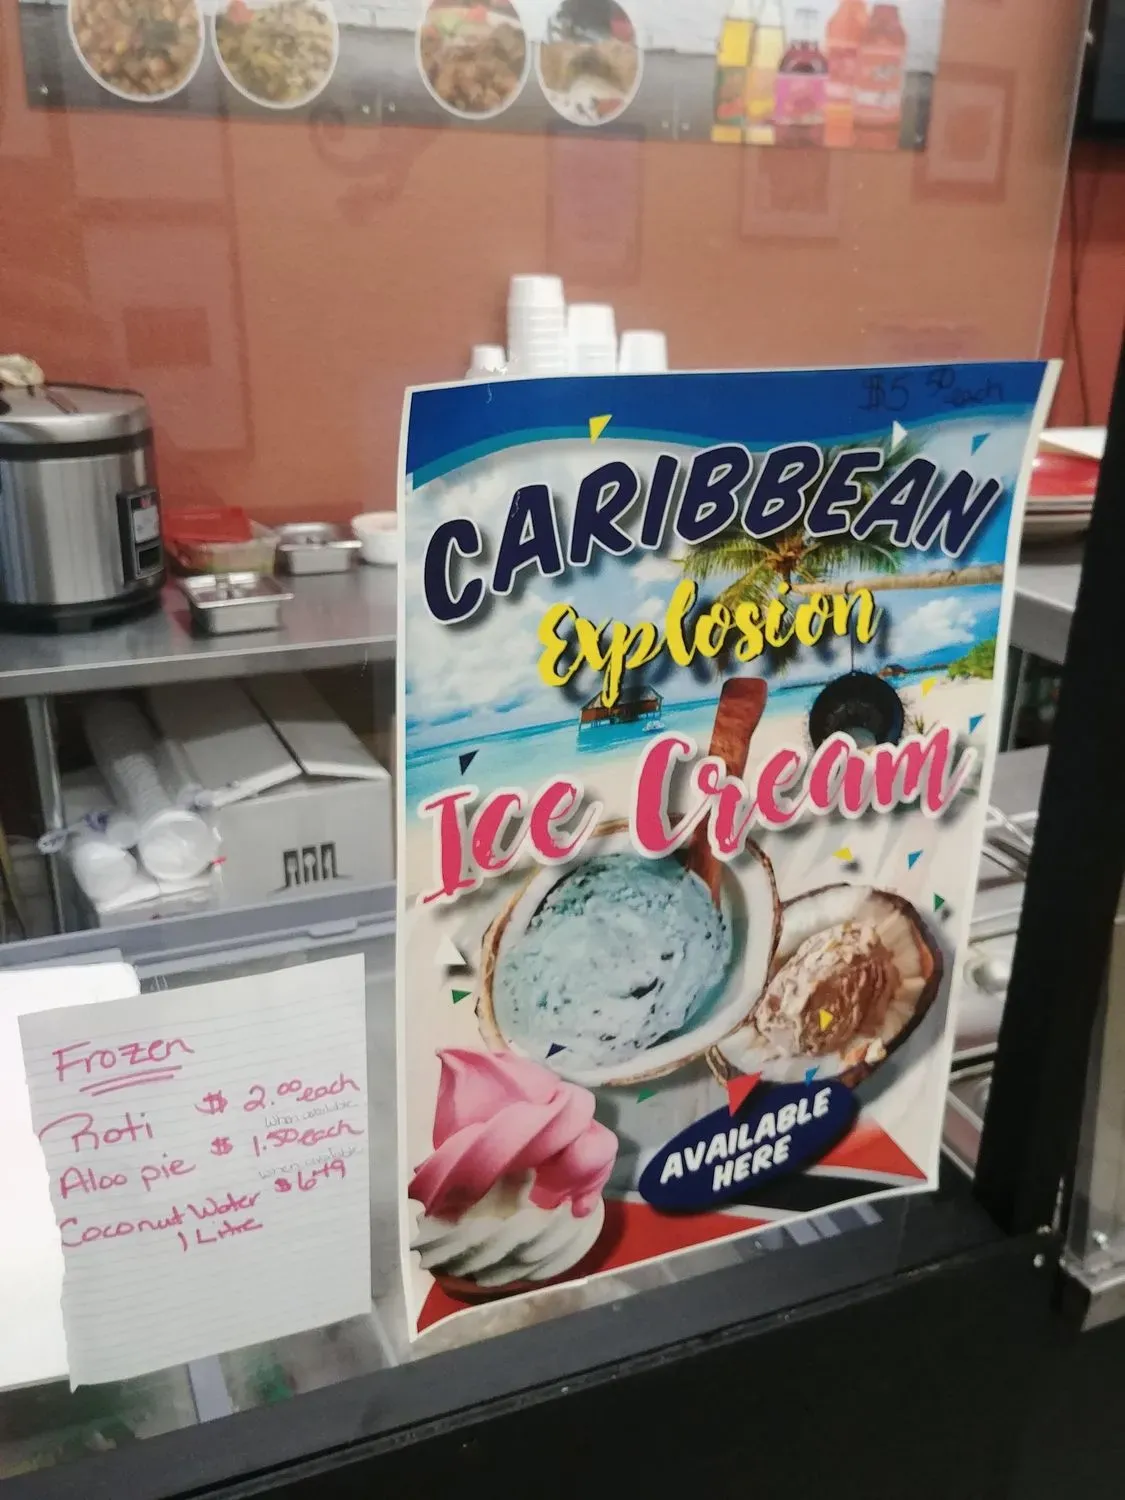 $5 50 each
CARIBBEAN
Explosion
Ice Cream
AVAILABLE
HERE
Frozen
Roti $ 2.00 each
when available
Aloo pie $ 1.50 each
when available
Coconut Water $6.49
1 Litre